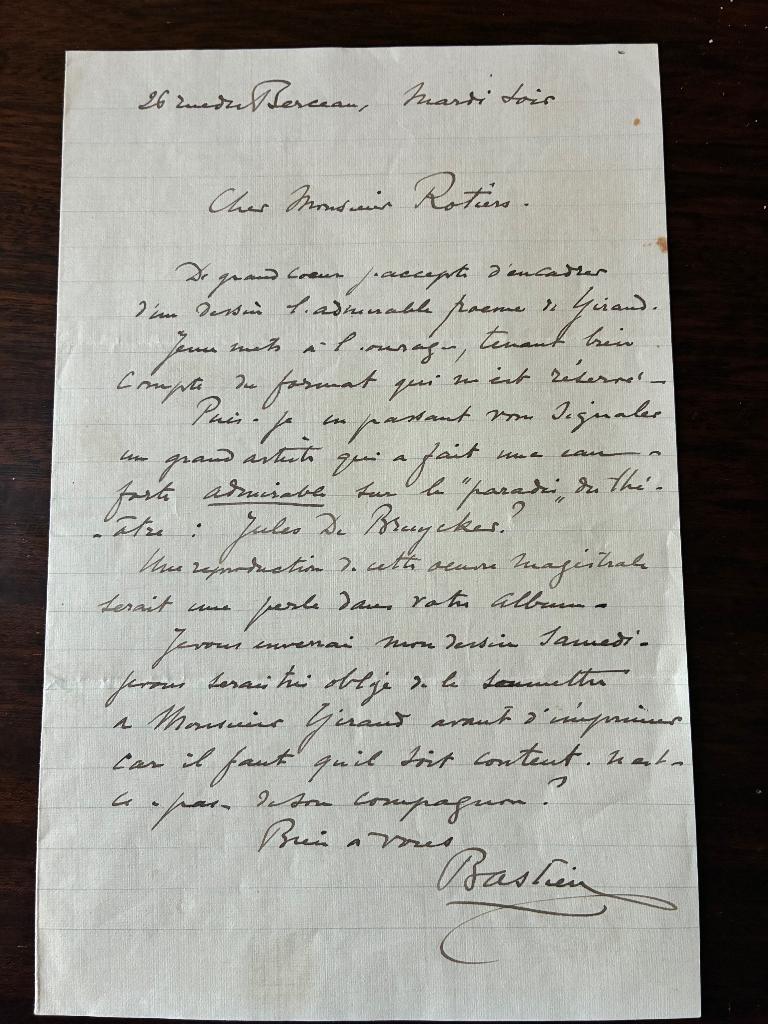 26 rue du Berceau, Mardi soir
Cher Monsieur Rotiers.
De grand coeur j'accepte d'encadrer
d'un dessin l'admirable poeme de Giraud.
Je me mets à l'ouvrage, tenant bien
compte du format qui m'est réservé -
Puis-je en passant vous signaler
un grand artiste qui a fait une eau-
forte admirable sur le "paradis" du thé-
-âtre : Jules De Bruycker ?
Une reproduction de cette oeuvre magistrale
serait une perle dans votre album -
Je vous enverrai mon dessin Samedi -
je vous serais très obligé de le soumettre
a Monsieur Giraud avant d'imprimer
car il faut qu'il soit content. n'est-
ce-pas- de son compagnon ?
Bien a vous
Bastien